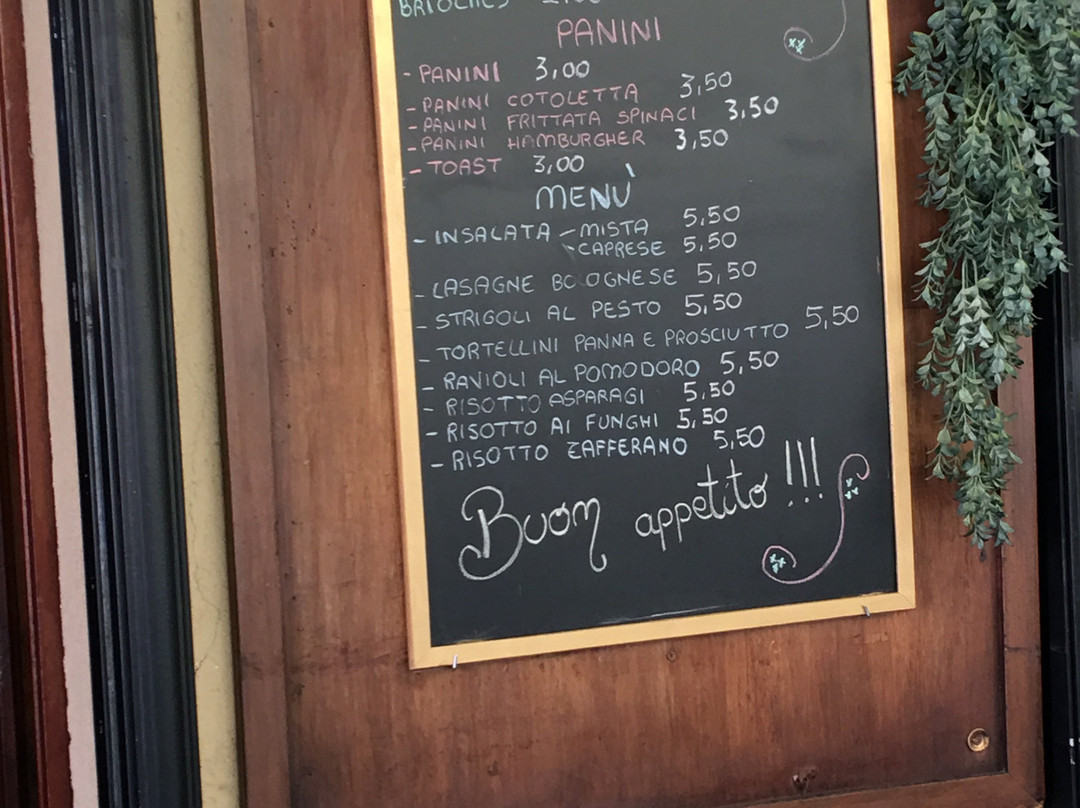 BRIOCHES
PANINI
- PANINI 3,00
- PANINI COTOLETTA 3,50
- PANINI FRITTATA SPINACI 3,50
- PANINI HAMBURGHER 3,50
- TOAST 3,00
MENÙ
- INSALATA - MISTA 5,50
- CAPRESE 5,50
- LASAGNE BOLOGNESE 5,50
- STRIGOLI AL PESTO 5,50
- TORTELLINI PANNA E PROSCIUTTO 5,50
- RAVIOLI AL POMODORO 5,50
- RISOTTO ASPARAGI 5,50
- RISOTTO AI FUNGHI 5,50
- RISOTTO ZAFFERANO 5,50
Buon appetito !!!